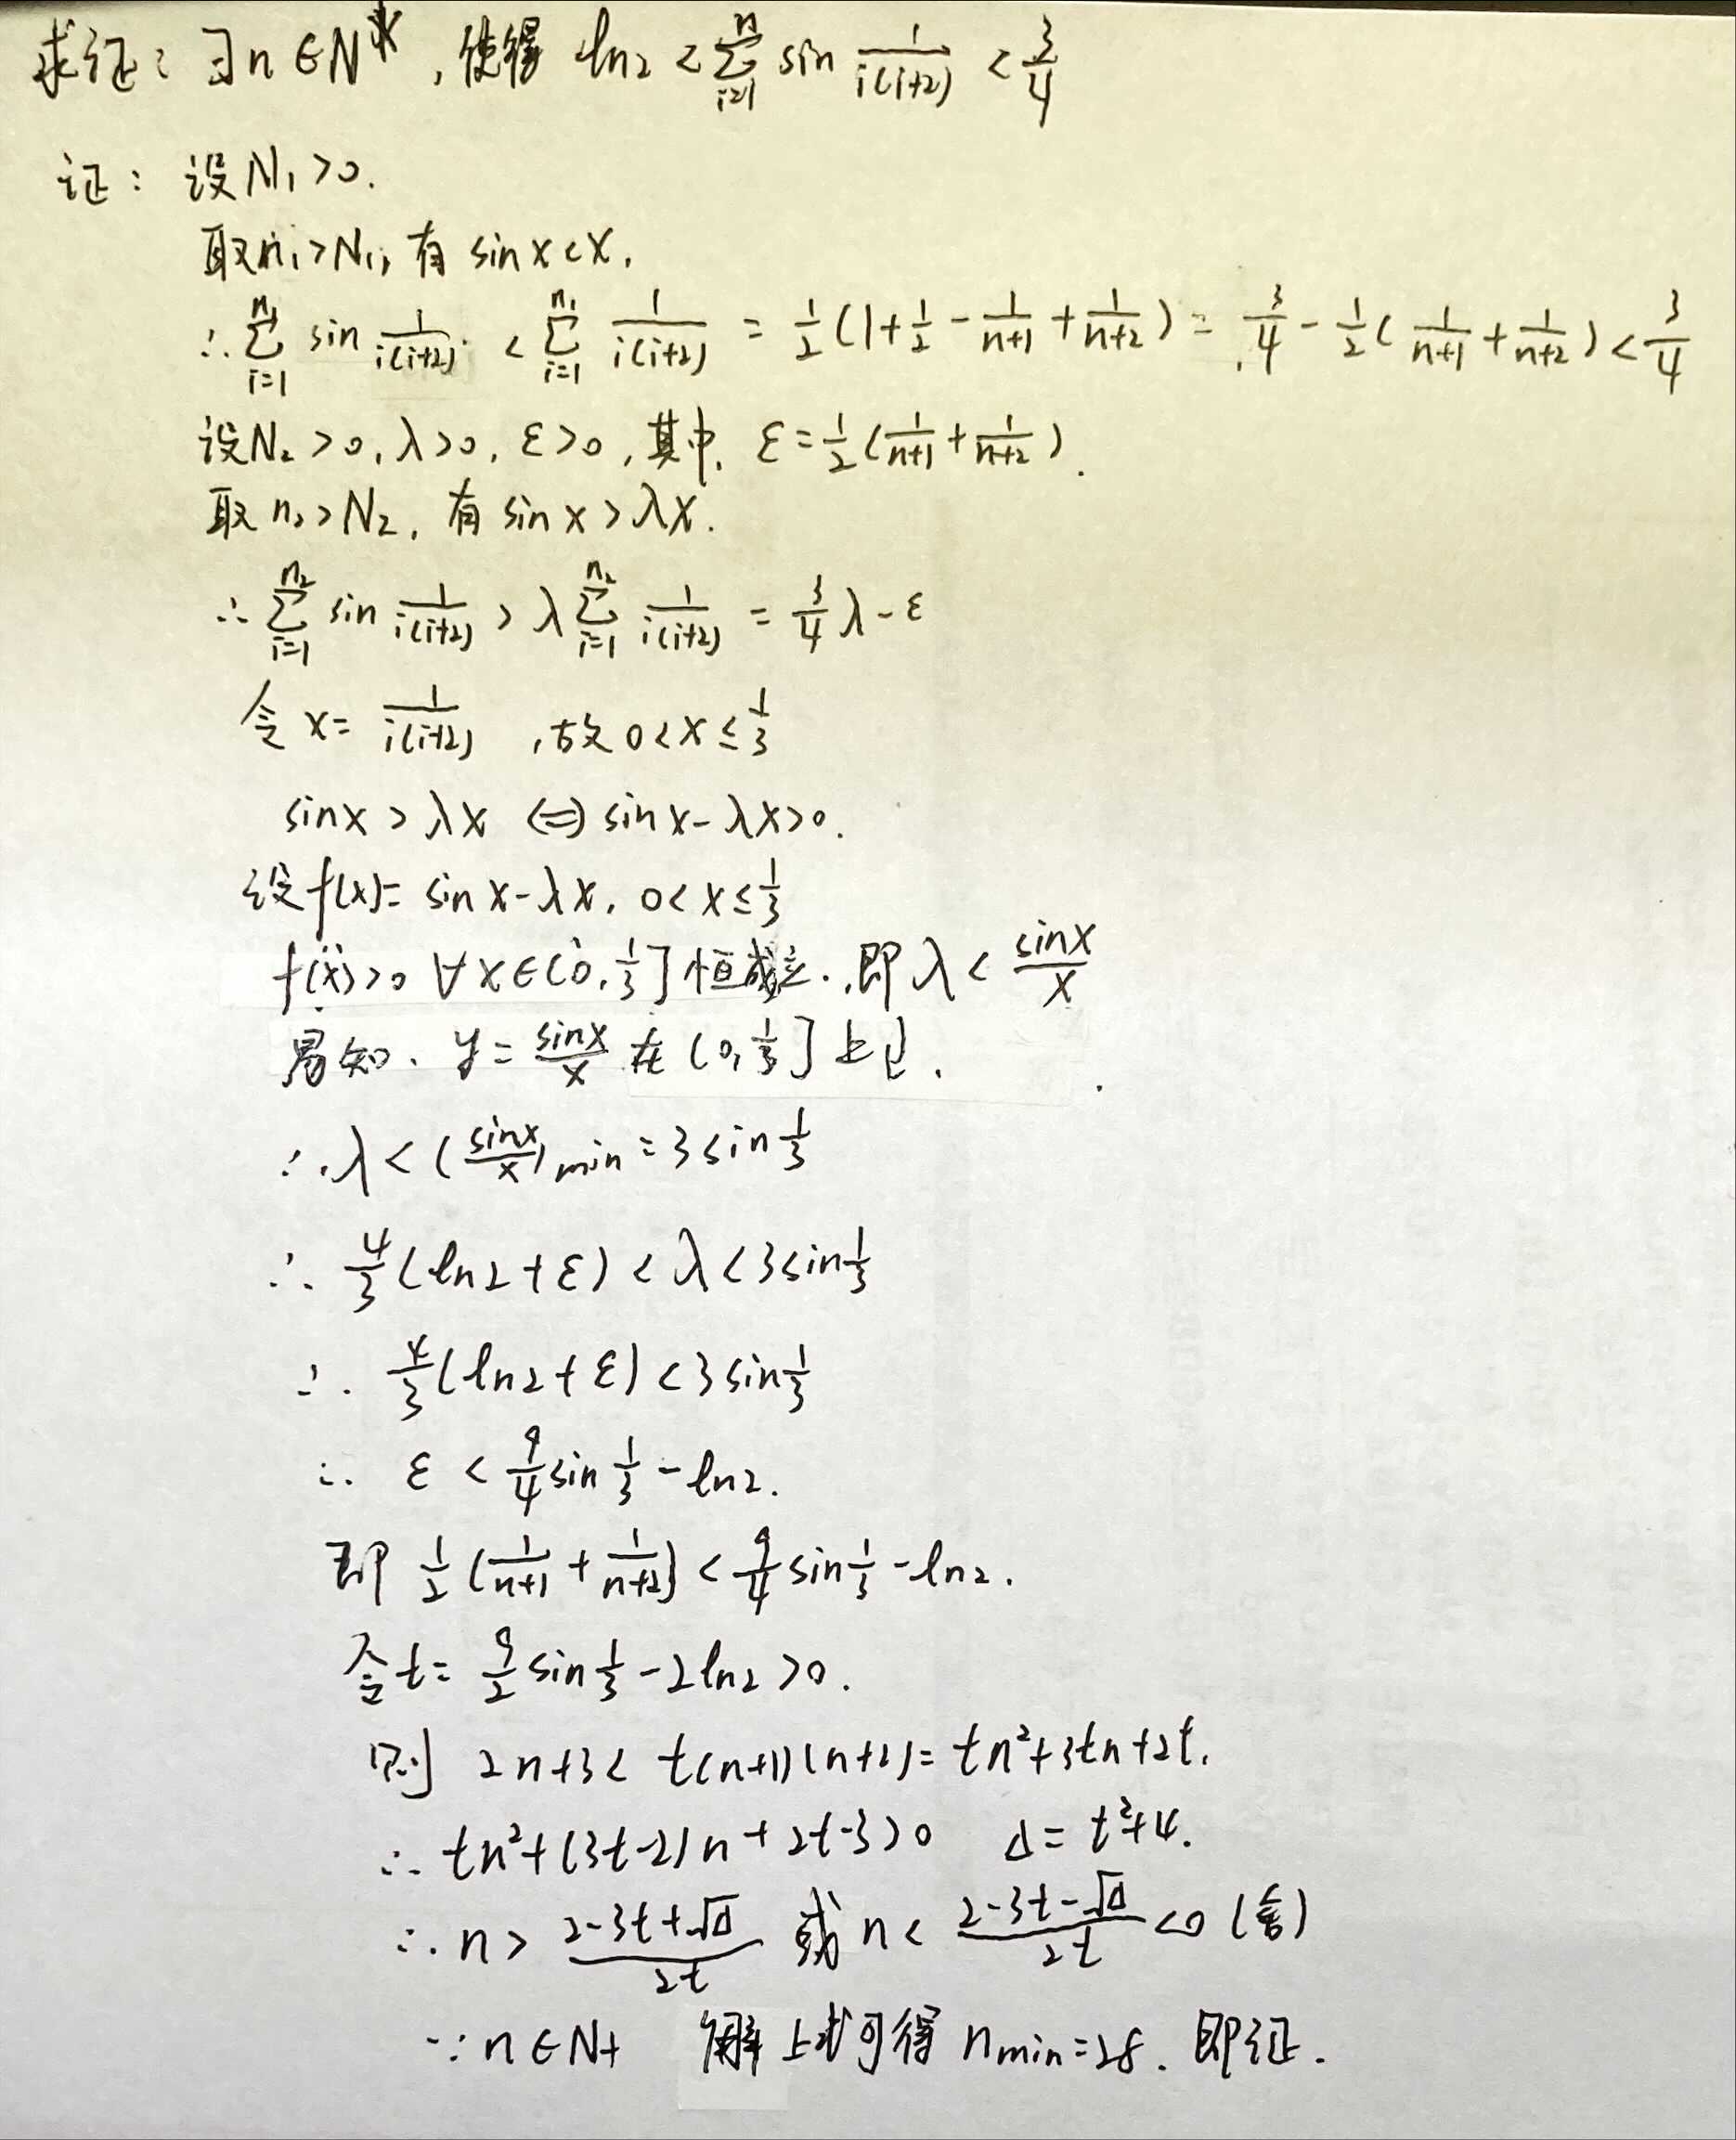 求证：∃n∈N*，使得 ln2 < ∑_{i=1}^{n} sin 1/(i(i+2)) < 3/4
证：设N₁>0.
取n₁>N₁，有 sinx<x.
∴ ∑_{i=1}^{n₁} sin 1/(i(i+2)) < ∑_{i=1}^{n₁} 1/(i(i+2)) = 1/2(1+1/2-1/(n+1)+1/(n+2)) = 3/4-1/2(1/(n+1)+1/(n+2))<3/4
设N₂>0, λ>0, ε>0，其中，ε=1/2(1/(n+1)+1/(n+2)).
取 n₂>N₂，有 sinx>λx.
∴ ∑_{i=1}^{n₂} sin 1/(i(i+2)) > λ∑_{i=1}^{n₂} 1/(i(i+2)) = 3/4λ-ε
令 x= 1/(i(i+2))，故 0<x≤1/3
sinx>λx ⟺ sinx-λx>0.
设f(x)= sinx-λx, 0<x≤1/3
f(x)>0 ∀x∈(0,1/3]恒成立.，即 λ< sinx/x
易知. y= sinx/x 在 (0,1/3]上↓.
∴ λ<(sinx/x)min=3sin1/3
∴ 4/3(ln2+ε)<λ<3sin1/3
∴ 4/3(ln2+ε)<3sin1/3
∴ ε<9/4sin1/3-ln2.
即 1/2(1/(n+1)+1/(n+2))<9/4sin1/3-ln2.
令t= 9/2sin1/3-2ln2>0.
则 2n+3< t(n+1)(n+2)= tn²+3tn+2t.
∴ tn²+(3t-2)n+2t-3>0 Δ= t²+4.
∴ n> (2-3t+√Δ)/2t 或 n< (2-3t-√Δ)/2t <0 (舍)
∵ n∈N+ 解上式可得 nmin=28. 即证.